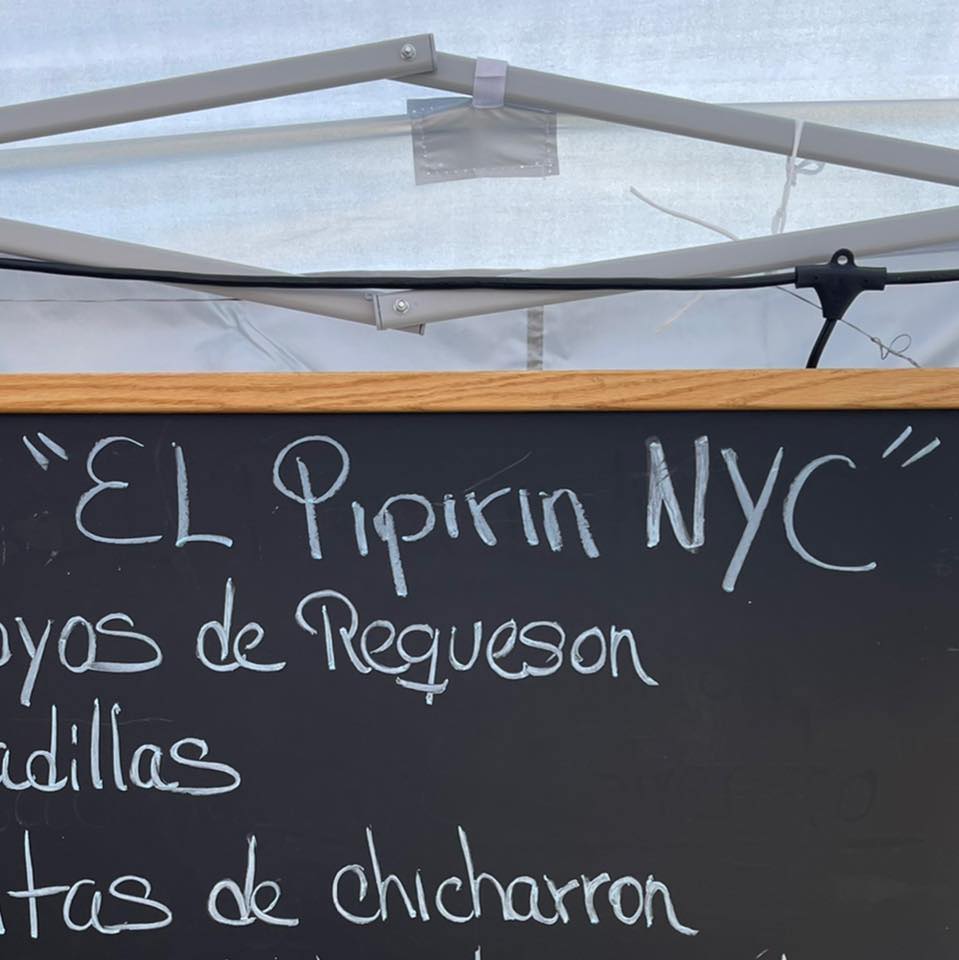 "EL Pipirin NYC"
oyos de Requeson
adillas
itas de chicharron